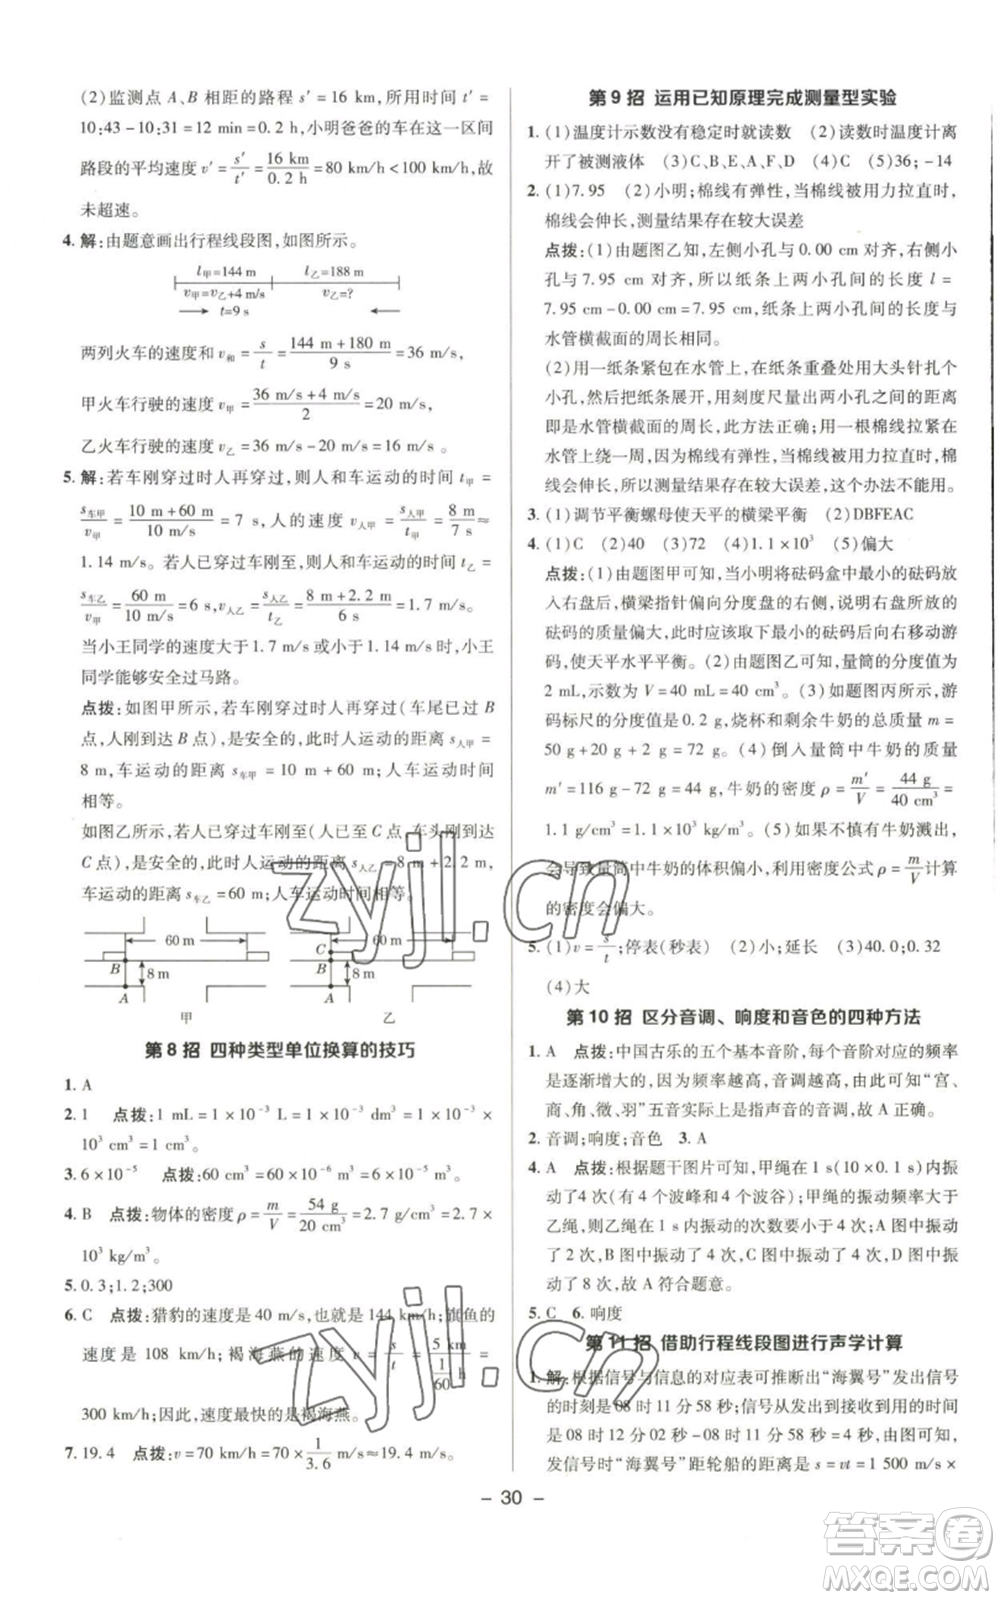 (2)监测点 A、B 相距的路程 s′=16 km,所用时间 t′=
10:43-10:31=12 min=0.2 h,小明爸爸的车在这一区间
路段的平均速度 v′=s′/t′=16 km/0.2 h=80 km/h<100 km/h,故
未超速。
4. 解:由题意画出行程线段图,如图所示。
l甲=144 m l乙=188 m
v甲=v乙+4 m/s v乙=?
t=9 s
两列火车的速度和 v和=s/t=(144 m+180 m)/9 s=36 m/s,
甲火车行驶的速度 v甲=(36 m/s+4 m/s)/2=20 m/s,
乙火车行驶的速度 v乙=36 m/s-20 m/s=16 m/s。
5. 解:若车刚穿过时人再穿过,则人和车运动的时间 t甲=
s车甲/v甲=(10 m+60 m)/10 m/s=7 s,人的速度 v人甲=s人甲/t甲=8 m/7 s≈
1.14 m/s。若人已穿过车刚穿过,则人和车运动的时间 t乙=
s车乙/v乙=60 m/10 m/s=6 s,v人乙=s人乙/t乙=(8 m+2.2 m)/6 s=1.7 m/s。
当小王同学的速度大于1.7 m/s,或小于1.14 m/s,小王
同学能够安全过马路。
点拨:如图甲所示,若车刚穿过时人再穿过(车尾已过 B
点,人到达 B 点),是安全的,此时人运动的距离 s人甲=
8 m,车运动的距离 s车甲=10 m+60 m;人车运动时间
相等。
如图乙所示,若人已穿过车刚穿过(人过 C 点,车头刚到达
C 点),是安全的,此时人运动的距离 s人乙=8 m+2.2 m,
车运动的距离 s车乙=60 m;人车运动时间相等。
60 m B 8 m A 甲
C 60 m B 8 m A 乙
第8招 四种类型单位换算的技巧
1. A
2. 1 点拨:1 mL=1×10⁻³ L=1×10⁻³ dm³=1×10⁻³×
10³ cm³=1 cm³。
3. 6×10⁻⁵ 点拨:60 cm³=60×10⁻⁶ m³=6×10⁻⁵ m³。
4. B 点拨:物体的密度 ρ=m/V=54 g/20 cm³=2.7 g/cm³=2.7×
10³ kg/m³。
5. 0.3;1.2;300
6. C 点拨:猎豹的速度是 40 m/s,也就是 144 km/h;旗鱼的
速度是 108 km/h;褐海燕的速度 v=s/t=5 km/(1/60 h)=
300 km/h;因此,速度最快的是褐海燕。
7. 19.4 点拨:v=70 km/h=70×1/3.6 m/s≈19.4 m/s。
第9招 运用已知原理完成测量型实验
1. (1)温度计示数没有稳定时就读数 (2)读数时温度计离
开了被测液体 (3)C、E、D、B (4)C (5)36;-14
2. (1)7.95 (2)小明;棉线有弹性,当棉线被用力拉直时,
棉线会伸长,测量结果存在较大误差
点拨:(1)由题图乙知,左侧小孔与 0.00 cm 对齐,右侧小
孔与 7.95 cm 对齐,所以纸条上两小孔间的长度 l=
7.95 cm-0.00 cm=7.95 cm,纸条上两小孔间的长度与
水管横截面的周长相同。
(2)用一纸条紧包在水管上,在纸条重叠处用大头针扎个
孔,然后将纸条展开,用刻度尺量出两孔间的距离,
即是水管横截面的周长,此方法正确;用一根棉线拉紧在
水管上绕一周,因为棉线有弹性,当棉线被拉直时,会伸
长,所以测量结果存在较大误差,这个办法不能用。
3. (1)调节平衡螺母使天平的横梁平衡 (2)DBFEAC
4. (1)C (2)40 (3)72 (4)1.1×10³ (5)偏大
点拨:(1)由题图甲可知,当小明将砝码盒中最小的砝码放
入右盘后,横梁指针偏向分度盘的右侧,说明右盘所放的
砝码的质量偏大,此时应该取下最小的砝码后向右移动游
码,使天平水平平衡。(2)由题图乙可知,量筒的分度值为
2 mL,示数为 V=40 mL=40 cm³。(3)如题图丙所示,游
码标尺的分度值是 0.2 g,烧杯和剩余牛奶的总质量 m=
50 g+20 g+2 g=72 g。(4)倒入量筒中牛奶的质量
m′=116 g-72 g=44 g,牛奶的密度 ρ=m′/V=44 g/40 cm³=
1.1 g/cm³=1.1×10³ kg/m³。(5)如果不慎有牛奶溅出,
会导致量筒中牛奶的体积偏小,根据密度公式 ρ=m/V计算
的密度会偏大。
5. (1)v=s/t;停表(秒表) (2)小;延长 (3)40.0;0.32
(4)大
第10招 区分音调、响度和音色的四种方法
1. A 点拨:中国古乐的五个基本音阶,每个音阶对应的频率
是逐渐增大的,因为频率越高,音调越高,由此可知“宫、
商、角、微、羽”五音实际上是指声音的音调,故 A 正确。
2. 音调;响度;音色 3. A
4. A 点拨:根据题干图片可知,甲绳在 1 s(或 0.1 s)内振
动了4 次(有 4 个波峰和 4 个波谷);甲绳的振动频率大于
乙绳,则乙绳在 1 s 内振动的次数要小于 4 次;A 图中振动
了 2 次,B 图中振动了 4 次,C 图中振动了 4 次,D 图中振
动了 8 次,故 A 符合题意。
5. C 6. 响度
第11招 借助行程线段图进行声学计算
1. 解:根据信号与信息的对应表可推断出“海翼号”发出信号
的时刻是08 时 11 分 58 秒;信号从发出到接收所用的时间
是 08 时 12 分 02 秒-08 时 11 分 58 秒=4 秒,
发信号时“海翼号”距轮船的距离是 s=vt=1 500 m/s×
- 30 -
zyjl.cn
zyjl.cn
答案圈
MXQE.COM